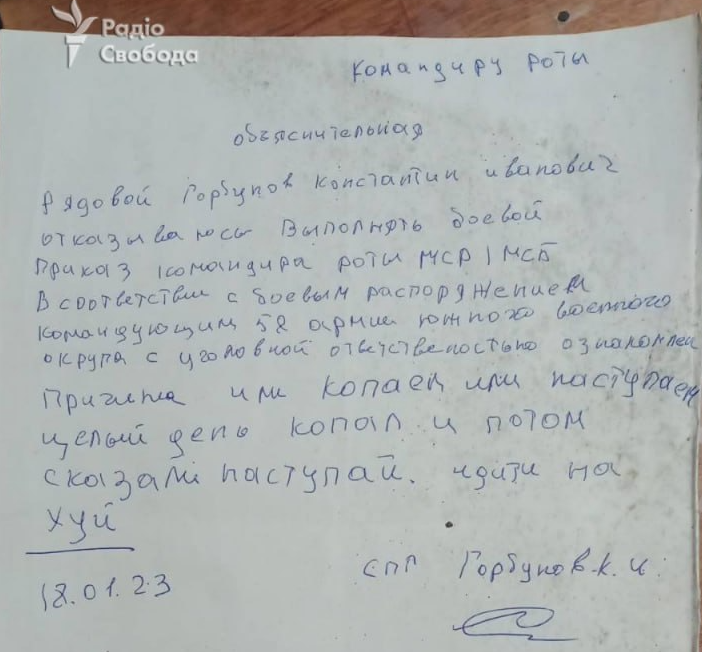 Радіо
Свобода
Командиру роты
объяснительная
Рядовой Горбунов Константин иванович
отказываюсь Выполнять боевой
Приказ командира роты МСР 1 МСБ
В соответствии с боевым распоряжением
командующим 58 армии южного военного
округа с уголовной ответственостью ознакомлен
Причина или копаем или наступаем
целый день копал и потом
сказали наступай. идити на
хуй
18.01.23
Горбунов.к.и.